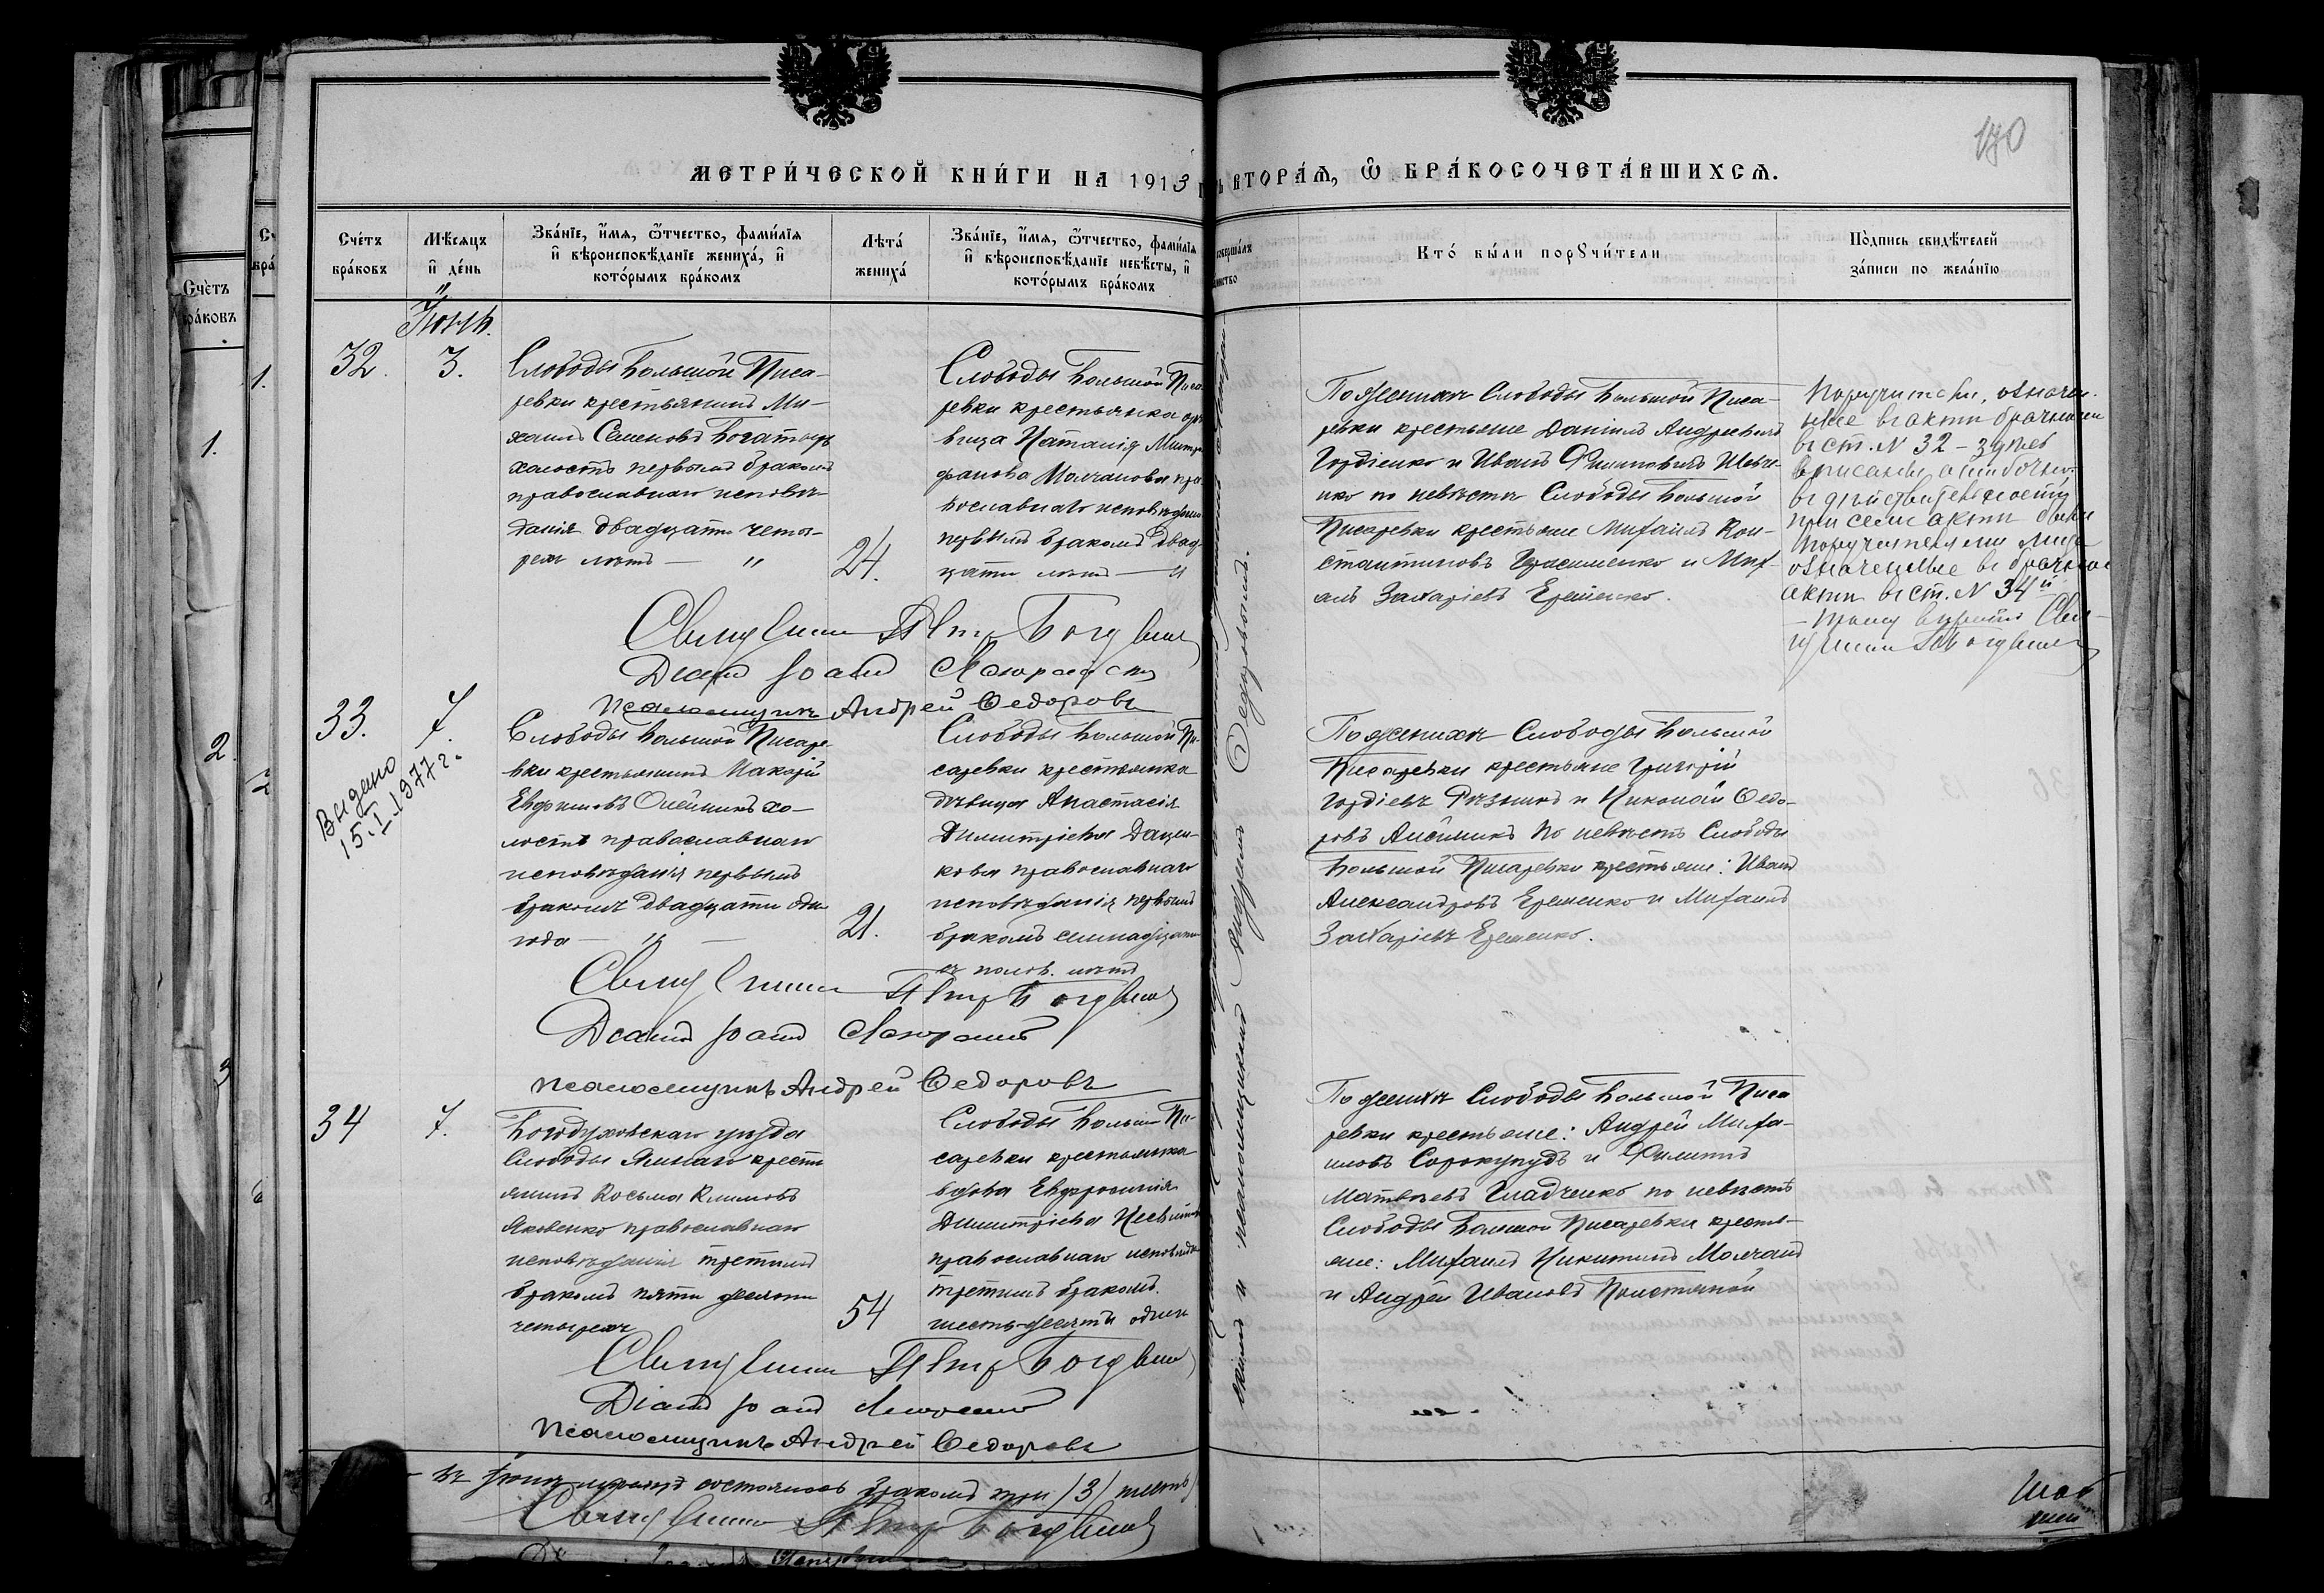 170
МЕТРИ́ЧЕСКОЙ КНИ́ГИ НА 1913
ВТОРА́Ѧ, Ѿ БРА́КОСОЧЕТА́ВШИХСѦ.
Сче́тъ бра́ковъ
Мѣ́сѧцъ и҆ де́нь
Зва́нїе, и҆́мѧ, ѻ҆́тчество, фами́лїѧ
и҆ вѣроисповѣ́данїе жениха́, и҆
кото́рымъ бра́комъ
Лѣта́ жениха́
Зва́нїе, и҆́мѧ, ѻ҆́тчество, фами́лїѧ
и҆ вѣроисповѣ́данїе невѣ́сты, и҆
кото́рымъ бра́комъ
Кто́ бы́ли порꙋчи́тели
По́дпись свидѣ́телей
за́писи по жела́нїю
Іюнь.
32.
3.
Слободы Большой Писа-
ревки крестьянинъ Ми-
хаилъ Семеновъ Богатырь
холостъ первымъ бракомъ
православнаго исповѣ-
данія двадцати четы-
рехъ лѣтъ — "
24.
Слободы Большой Писа
ревки крестьянка дѣ
вица Наталія Митро
фанова Молчанова пра
вославнаго исповѣдан
первымъ бракомъ двад
цати лѣтъ — "
По женихѣ Слободы Большой Писа-
ревки крестьяне Даніилъ Андреевъ
Гордіенко и Иванъ Филиповъ Шевче-
нко по невѣстѣ Слободы Большой
Писаревки крестьяне Михаилъ Кон-
стантиновъ Герасименко и Миха
илъ Захаріевъ Еременко.
Поручители, означен-
ные в актѣ брачномъ
въ ст. № 32 - здѣсь
вписаны ошибочно
въ дѣйствительности
при семъ актѣ были
поручителями лица
означенные въ брачном
актѣ въ ст. № 34й
Священникъ Петръ
Діаконъ Іоаннъ
Псаломщикъ Андрей Федоровъ
33.
7.
Выдано
15.I.1977 г.
Слободы Большой Писаре-
вки крестьянинъ Макарій
Евфимовъ Олейникъ хо-
лостъ православнаго
исповѣданія первымъ
бракомъ двадцати одн
года — " —
21.
Слободы Большой Пи-
саревки крестьянка
дѣвица Анастасія
Димитріева Дацен-
кова православнаго
исповѣданія первымъ
бракомъ семнадцати
съ полов. лѣтъ
По женихѣ Слободы Большой
Писаревки крестьяне Григорій
Гордіевъ Рѣзникъ и Николай Федо-
ровъ Алейникъ по невѣстѣ Слободы
Большой Писаревки крестьяне: Иванъ
Александровъ Еременко и Михаилъ
Захаріевъ Еременко.
Священникъ Петръ
Діаконъ Іоаннъ
Псаломщикъ Андрей Федоровъ
34
7.
Богодуховскаго уѣзда
Слободы крестья
янинъ Косьма Климовъ
Яковенко православнаго
исповѣданія третьимъ
бракомъ пяти десяти
четырехъ
54
Слободы Больш Пи-
саревки крестьянка
вдова Евфросинія
Димитріева
православнаго исповѣдан
третьимъ бракомъ
шесть-десятъ одинъ
По женихѣ Слободы Большой Писа
ревки крестьяне: Андрей Миха-
иловъ Сорокунудъ и Филиппъ
Матвѣевъ Гладченко по невѣстѣ
Слободы Большой Писаревки кресть-
яне: Михаилъ Никитинъ Молчанъ
и Андрей Ивановъ
Священникъ Петръ
Діаконъ Іоаннъ
Псаломщикъ Андрей Федоровъ
въ Іюнѣ мѣсяцѣ состоялось бракомъ три /3/
Священникъ Петръ